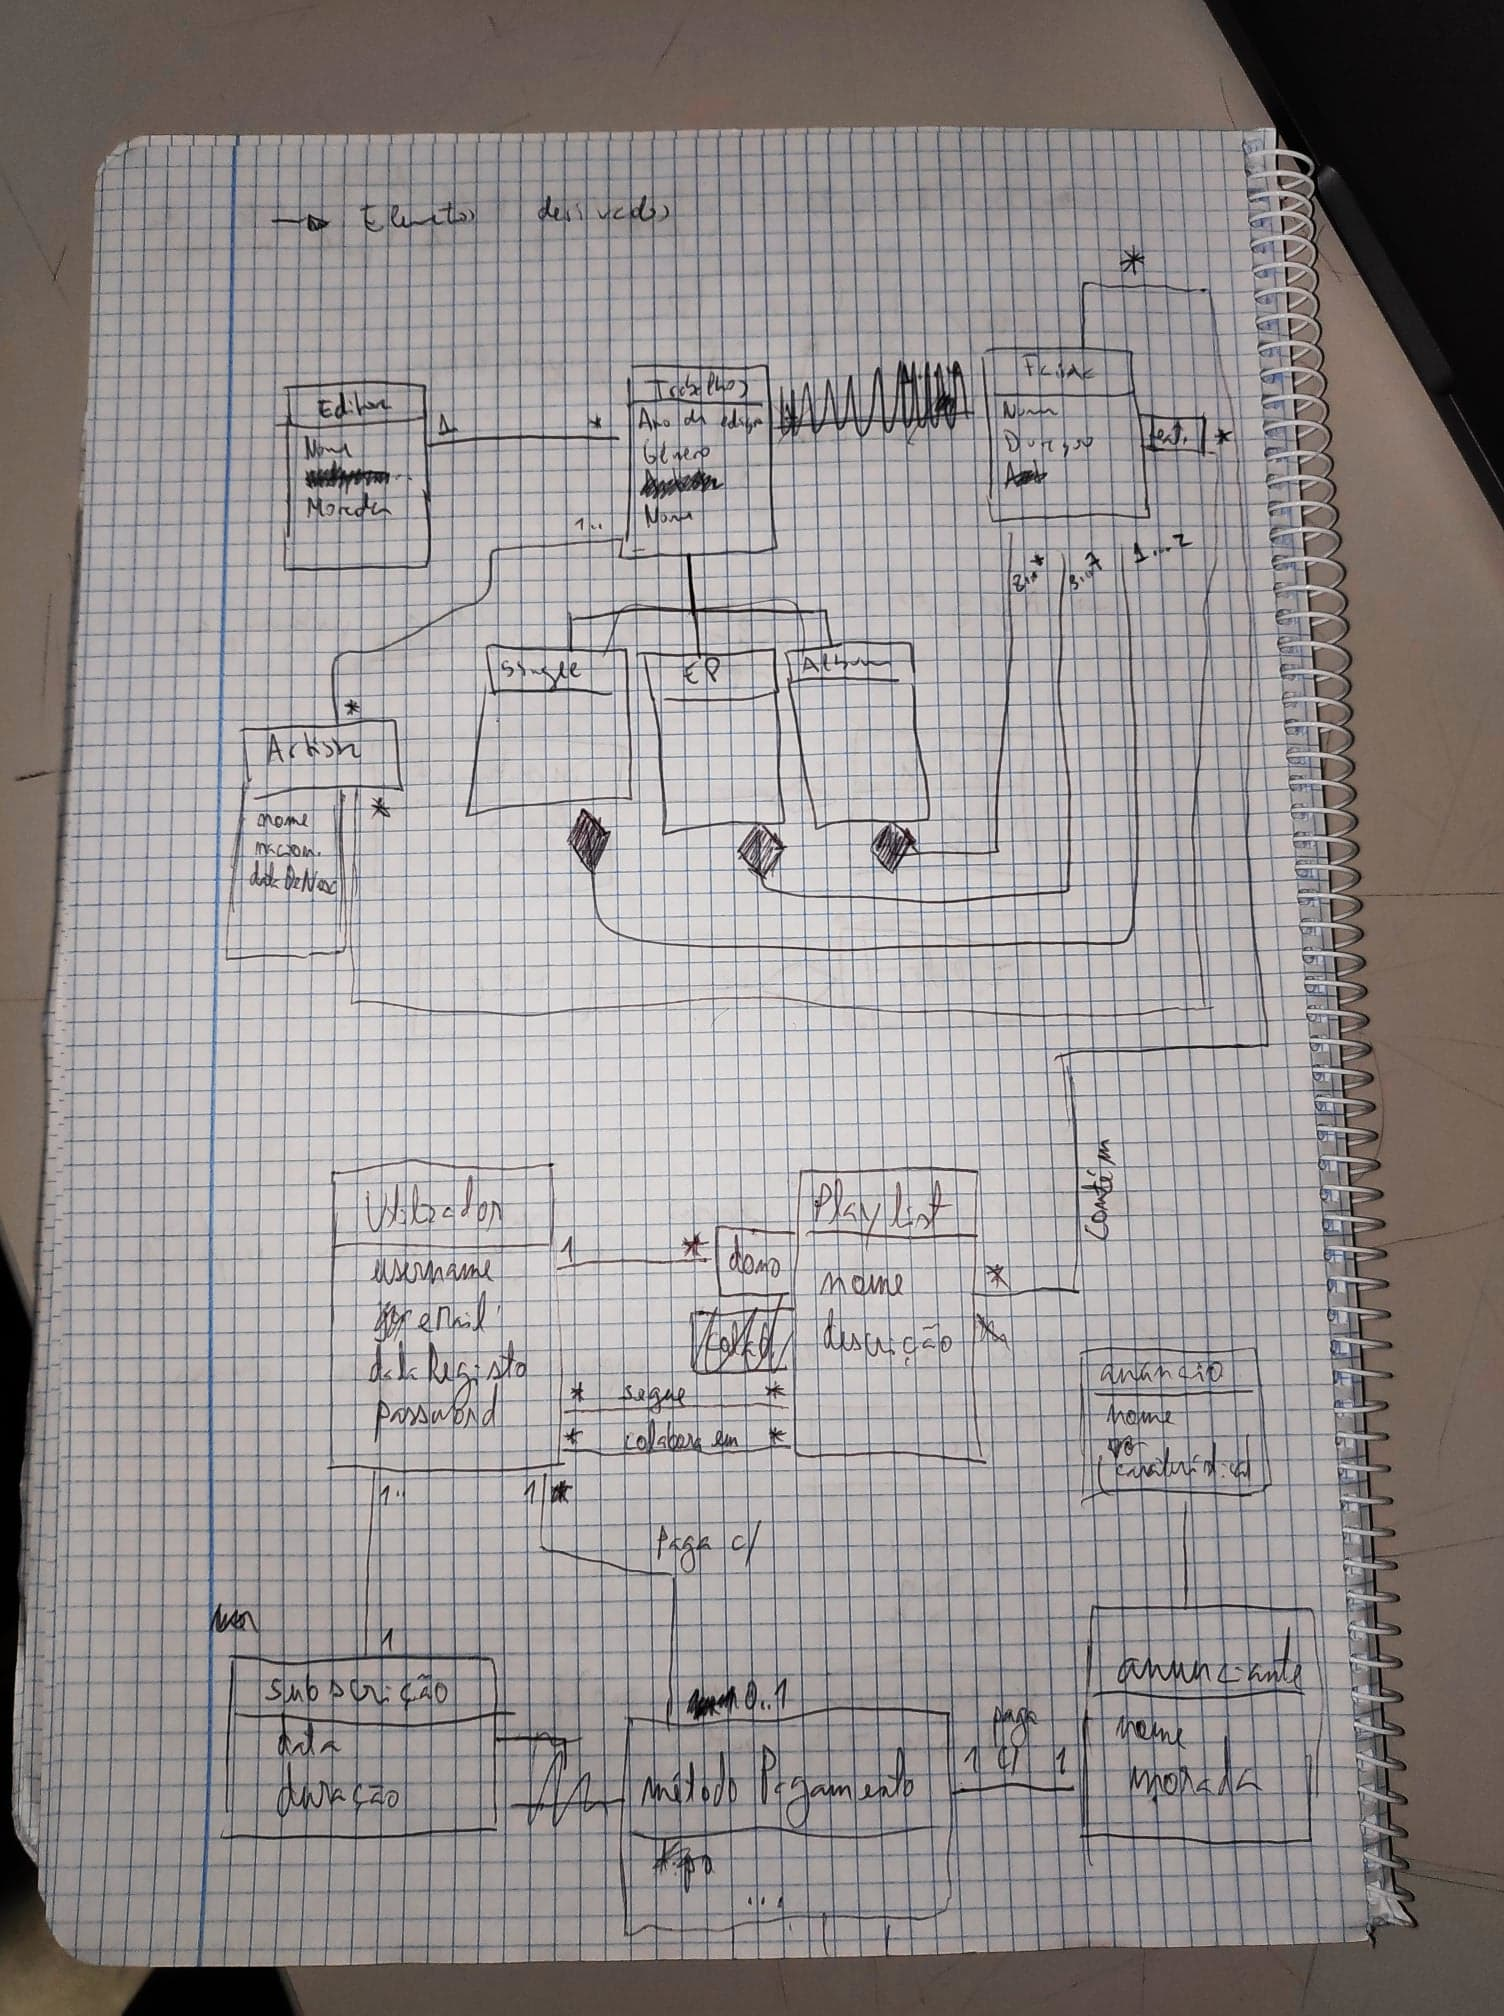 → Elementos derivados
*
Editora
Nome
Morada
1 *
Trabalhos
Ano de edição
Género
Nome
1..
Faixa
Nome
Duração
feat. *
8..* 3..7 1...2
Single
EP
Album
*
Artista
*
nome
nacion.
dataDeNasc
Utilizador
username
email
dataRegisto
password
1 *
dono
Playlist
nome
descrição
*
Contém
* segue *
* colabora em *
anúncio
nome
caraterísticas
1..
1
Paga c/
1
subscrição
data
duração
0..1
método Pagamento
tipo
...
paga
1 c/ 1
anunciante
nome
morada